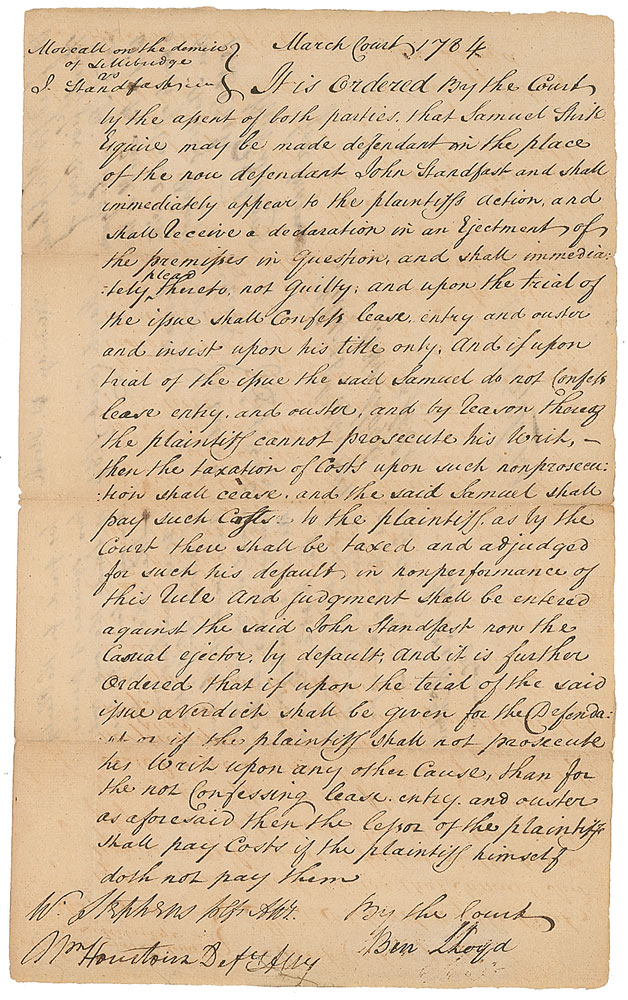 March Court 1784
Moveall on the demise
of Lillibridge
vs
J. Standfast
It is Ordered By the Court
by the asent of both parties, that Samuel Stirk
Esquire may be made defendant in the place
of the now defendant John Standfast and shall
immediately appear to the plaintiffs action, and
shall receive a declaration in an Ejectment of
the premisses in Question, and shall immedia:
plead
:tely thereto, not Guilty; and upon the trial of
the issue shall Confess lease, entry and ouster
and insist upon his title only. And if upon
trial of the issue the said Samuel do not Confess
lease entry, and ouster, and by reason thereof
the plaintiff cannot prosecute his Writ, —
then the taxation of Costs upon such nonprosecu:
:tion shall cease, and the said Samuel shall
pay such Costs to the plaintiff, as by the
Court there shall be taxed and adjudged
for such his default, in nonperformance of
this rule And judgment shall be entered
against the said John Standfast now the
Casual ejector, by default, And it is further
Ordered that if upon the trial of the said
issue a Verdict shall be given for the Defenda:
:nt or if the plaintiff shall not prosecute
his Writ upon any other Cause, than for
the not Confessing lease, entry, and ouster
as aforesaid then the lessor of the plaintiff
shall pay Costs if the plaintiff himself
doth not pay them
Wm Stephens plfs Atty. By the Court
Wm Houstoun Defts Atty Ben Lloyd